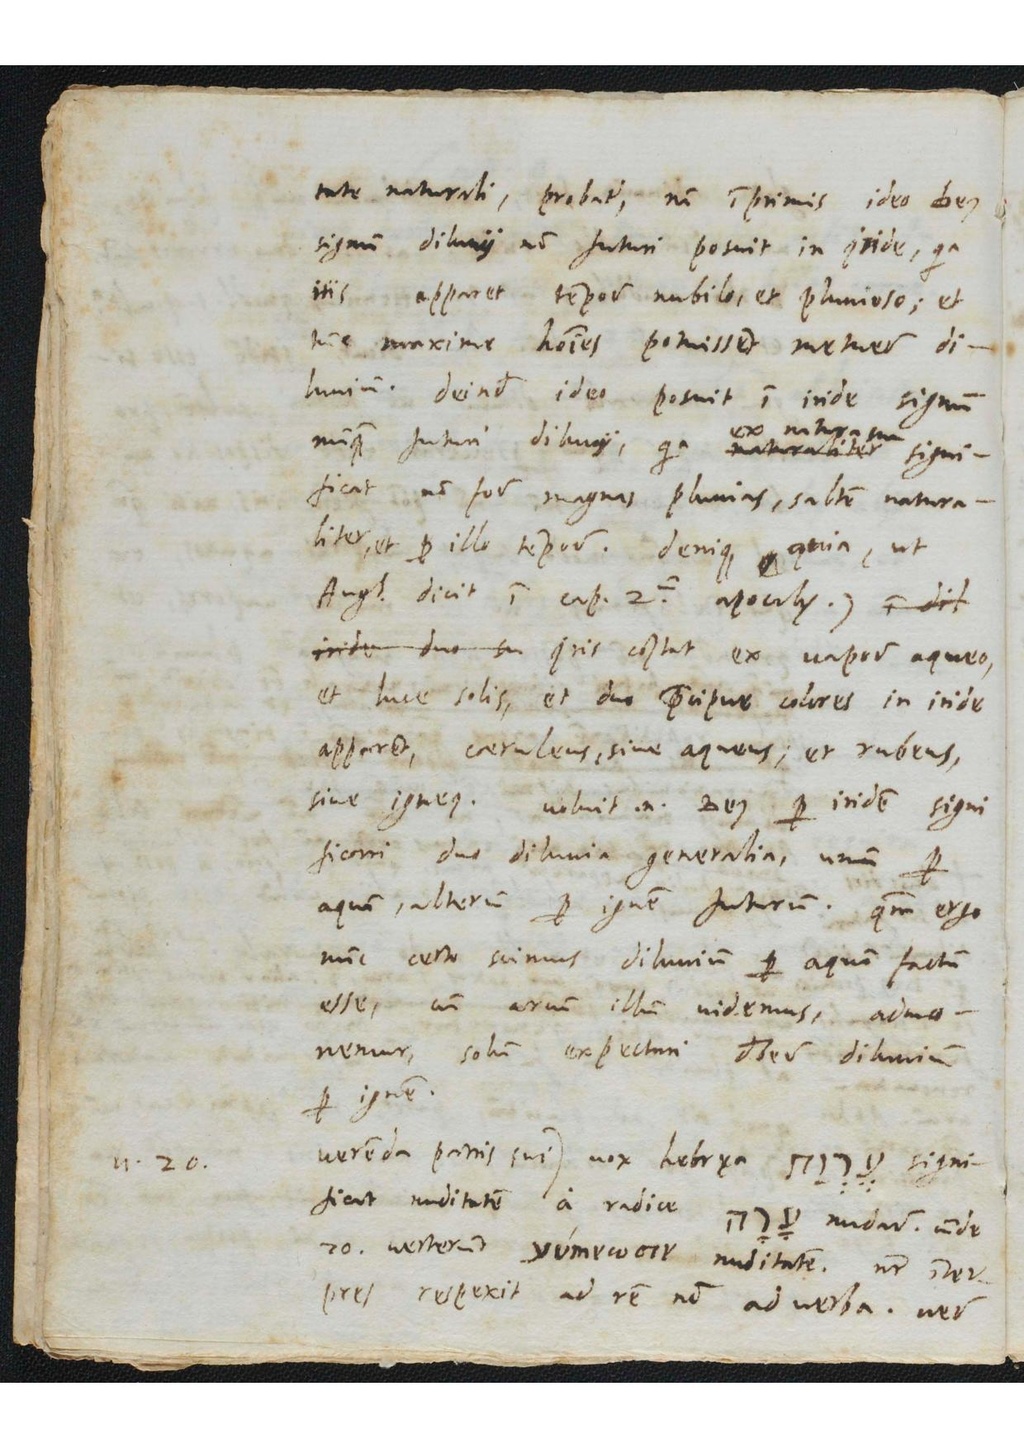 tate naturali, probat', nā īprimis ideo Deꝰ
signū diluuij nō futuri posuit in iride, qa
iris apparet tēpor̄ nubilo, et pluuioso; et
tūc maxime hoīes potuissēt metuer̄ di-
luuiū. deind' ideo posuit ī iride signū
nūqꝫ futuri diluuij, qa ex natura sua naturaliter signi-
ficat nō for̄ magnas pluuias, saltē natura-
liter, et ꝑ illo tēpor̄. deniqꝫ quia, ut
Augt. dicit ī cap. 2m. apocalyp.) ī
iride duo su iris cōstat ex uapor̄ aqueo,
et luce solis, et duo p̄cipue colores in iride
apparēt, cæruleus, siue aqueus; et rubeus,
siue igneꝰ. uoluit .n. Deꝰ ꝑ iridē signi
ficari duo diluuia generalia, unū ꝑ
aquā, alterū ꝑ ignē futurū. qm̄ ergo
nūc certo scimus diluuiū ꝑ aquā factū
esse, cū arcū illū uidemus, admo-
nemur, solū expectari diluuiū
ꝑ ignē.
u. 20. uerēda patris sui) uox hebręa עֶרְוַה signi-
ficat nuditatē à radice עָרָה nudar̄. unde
70. uerterūt γύμνωσιν nuditatē. nr̄ īter-
pres respexit ad rē nō ad uerba. uer̄